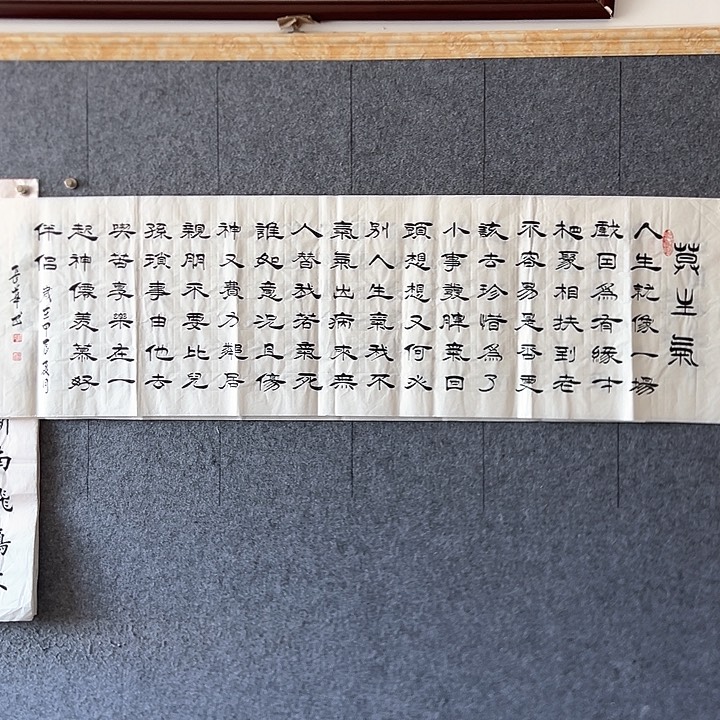 莫生氣
人生就像一場
戲因為有緣才
聚相扶到老
不容易是否更
該去珍惜為了
小事發脾氣回
頭想想又何必
別人生氣我不
氣氣出病來無
人替我若氣死
誰如意況且傷
神又費力鄰居
親朋不要比兒
孫瑣事由他去
苦享樂在一
起神僊羨慕好
伴侶 歲在甲辰夏月
南飛